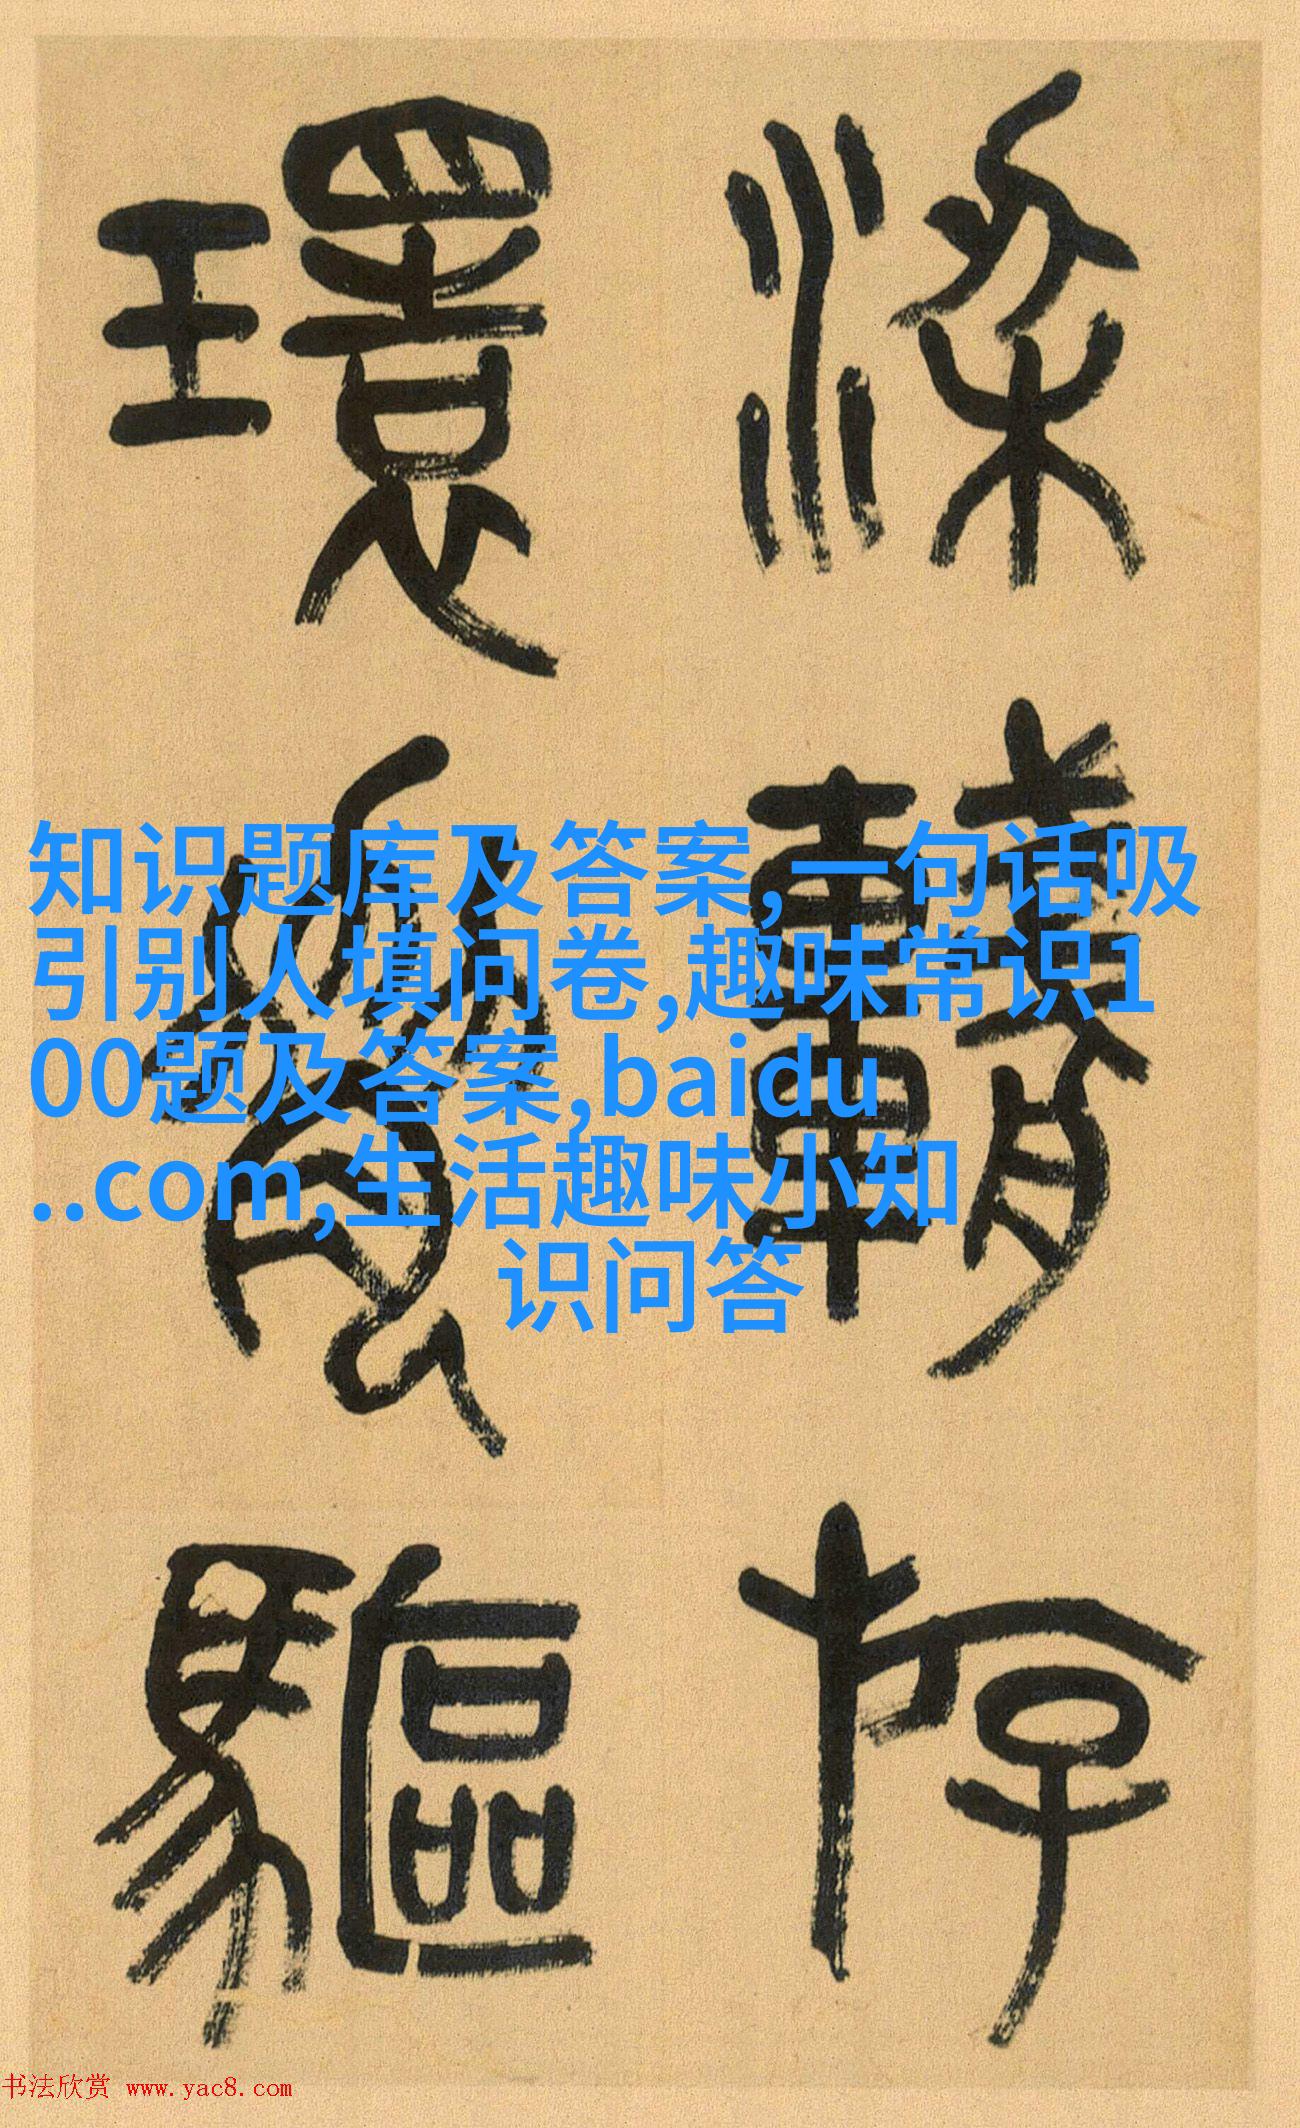 梁輈斿
環脅驅
知识题库及答案,一句话吸
引别人填问卷,趣味常识1
00题及答案,baidu
..com,生活趣味小知
识问答
书法欣赏 www.yac8.com